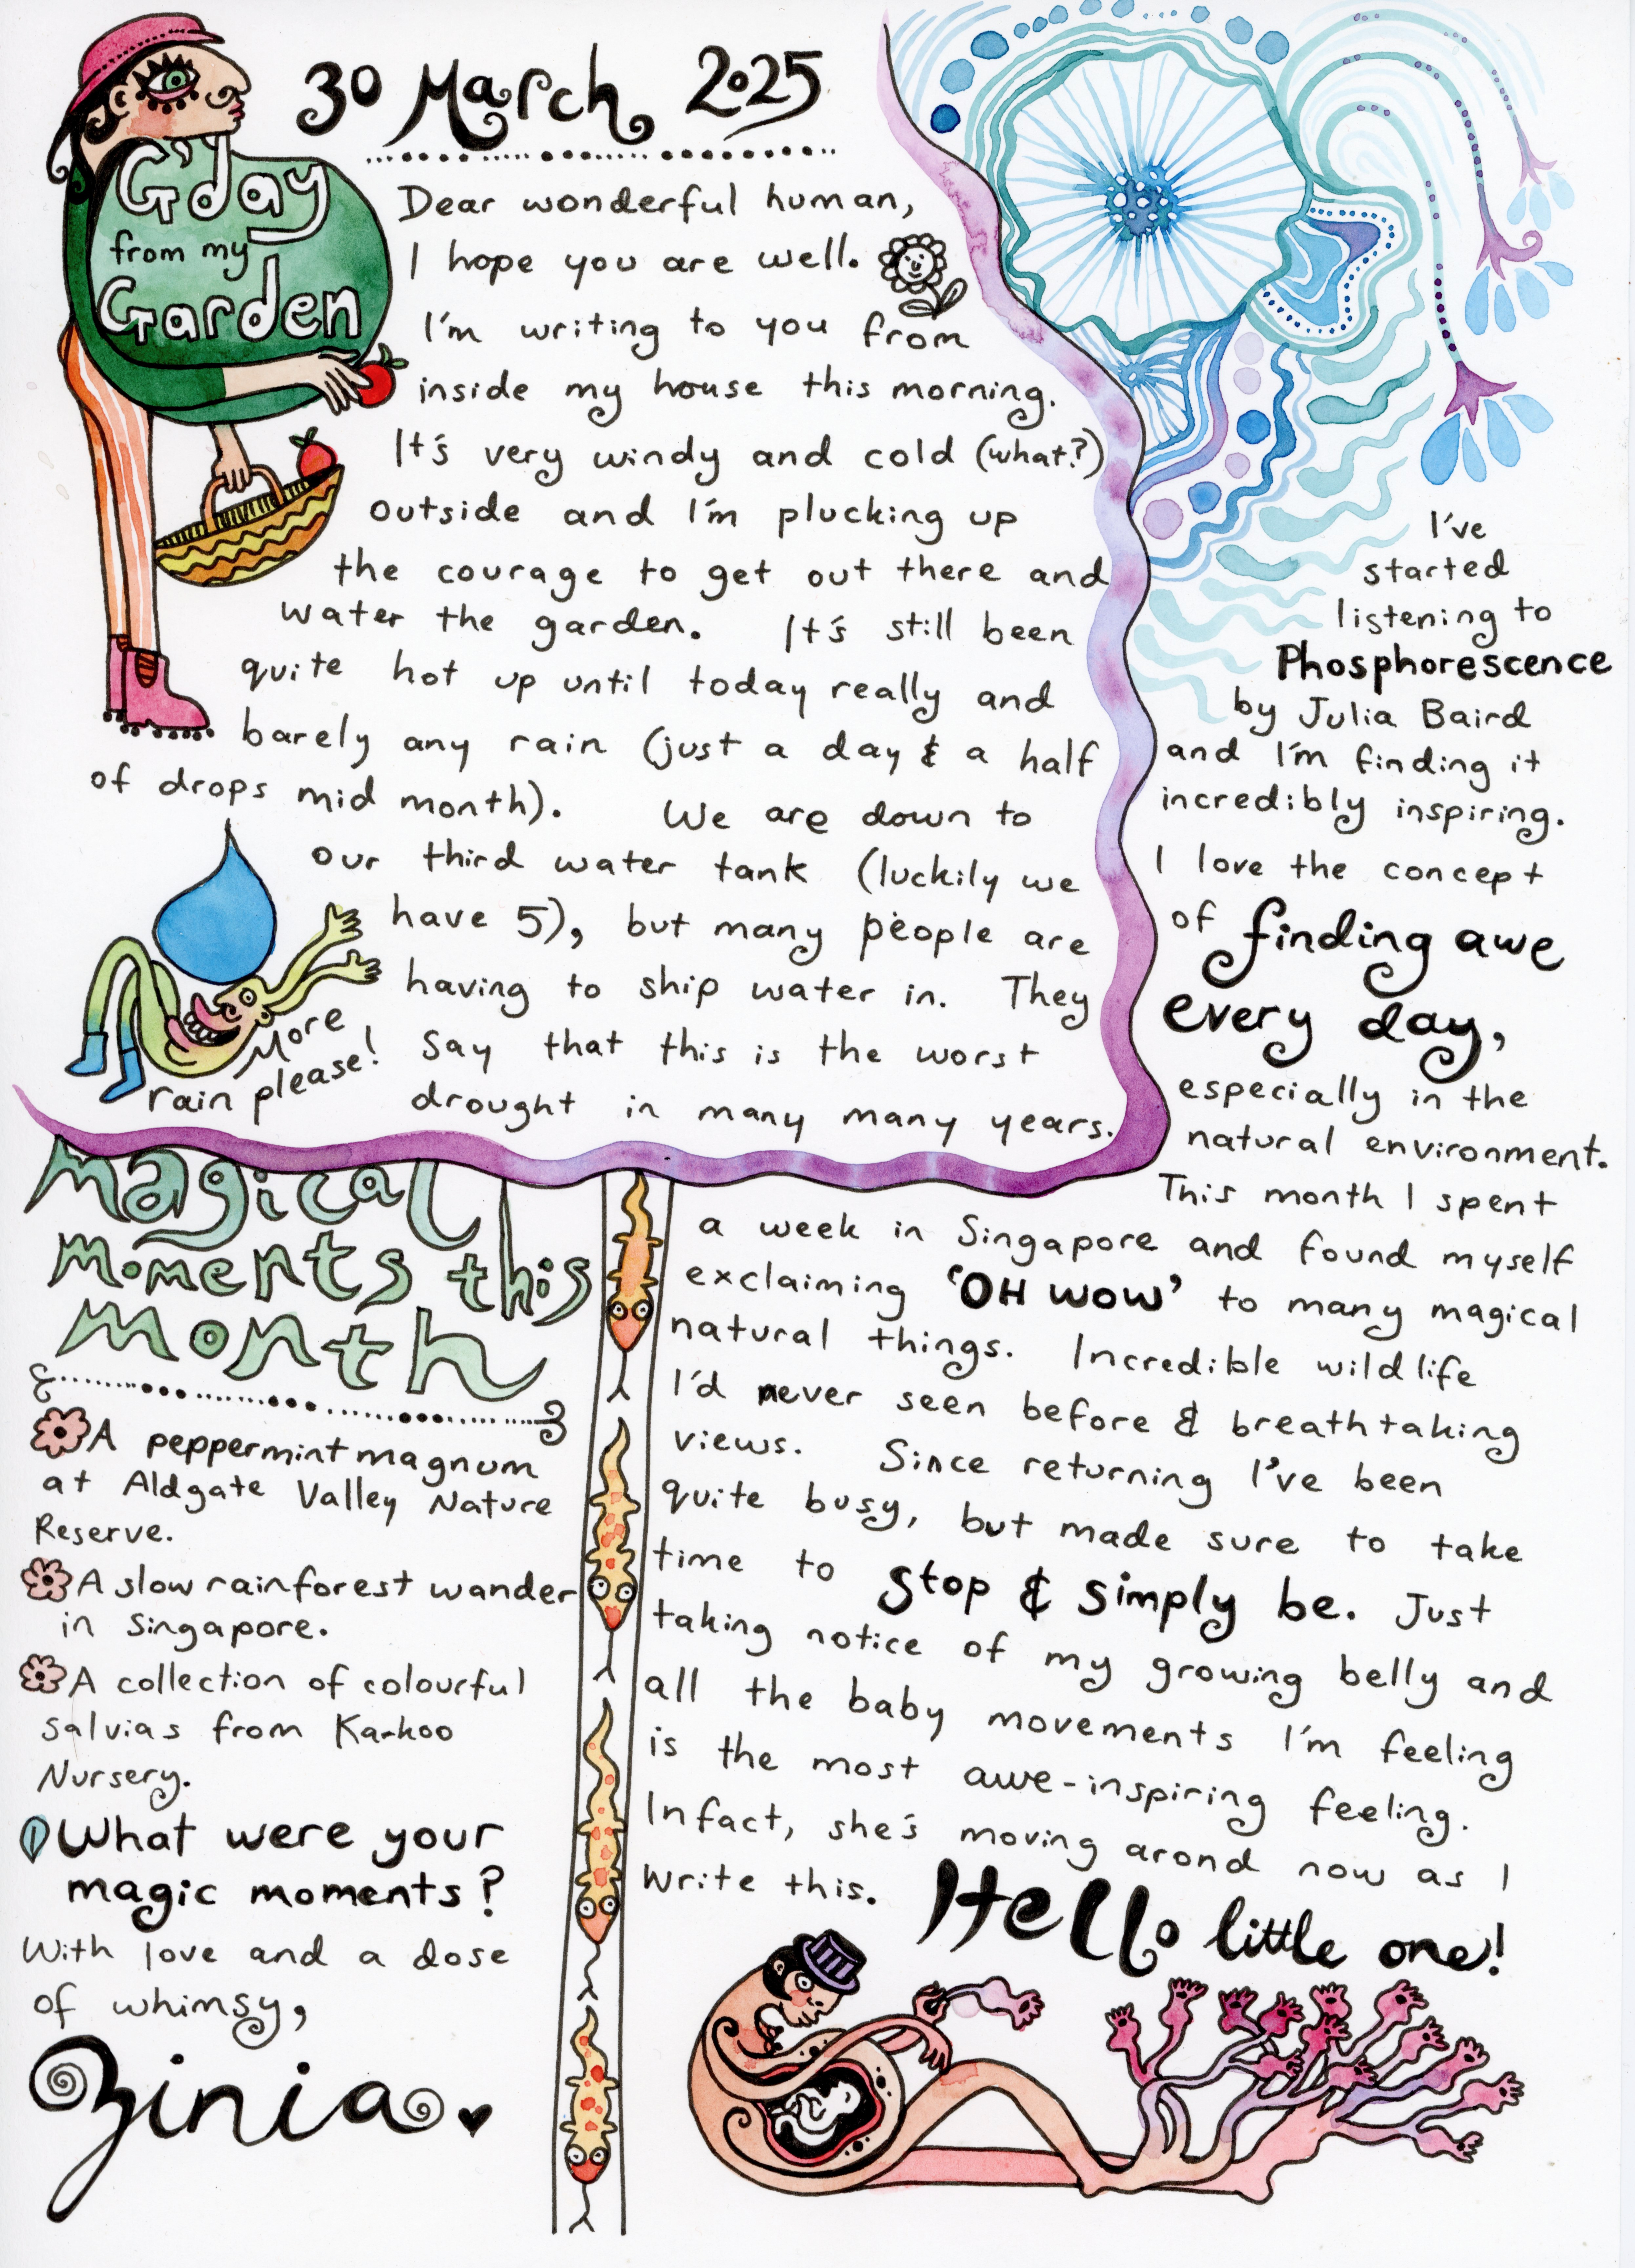 30 March 2025
G'day
from my
Garden
Dear wonderful human,
I hope you are well.
I'm writing to you from
inside my house this morning.
It's very windy and cold (what?)
outside and I'm plucking up
the courage to get out there and
water the garden. It's still been
quite hot up until today really and
barely any rain (just a day & a half
of drops mid month). We are down to
our third water tank (luckily we
have 5), but many people are
having to ship water in. They
say that this is the worst
drought in many many years.
More
rain please!
I've
started
listening to
Phosphorescence
by Julia Baird
and I'm finding it
incredibly inspiring.
I love the concept
of finding awe
every day,
especially in the
natural environment.
This month I spent
a week in Singapore and found myself
exclaiming 'OH WOW' to many magical
natural things. Incredible wildlife
I'd never seen before & breathtaking
views. Since returning I've been
quite busy, but made sure to take
time to Stop & simply be. Just
taking notice of my growing belly and
all the baby movements I'm feeling
is the most awe-inspiring feeling.
Infact, she's moving arond now as I
write this. Hello little one!
Magical
Moments this
Month
A peppermint magnum
at Aldgate Valley Nature
Reserve.
A slow rainforest wander
in Singapore.
A collection of colourful
salvias from Karkoo
Nursery.
What were your
magic moments?
With love and a dose
of whimsy,
Zinia